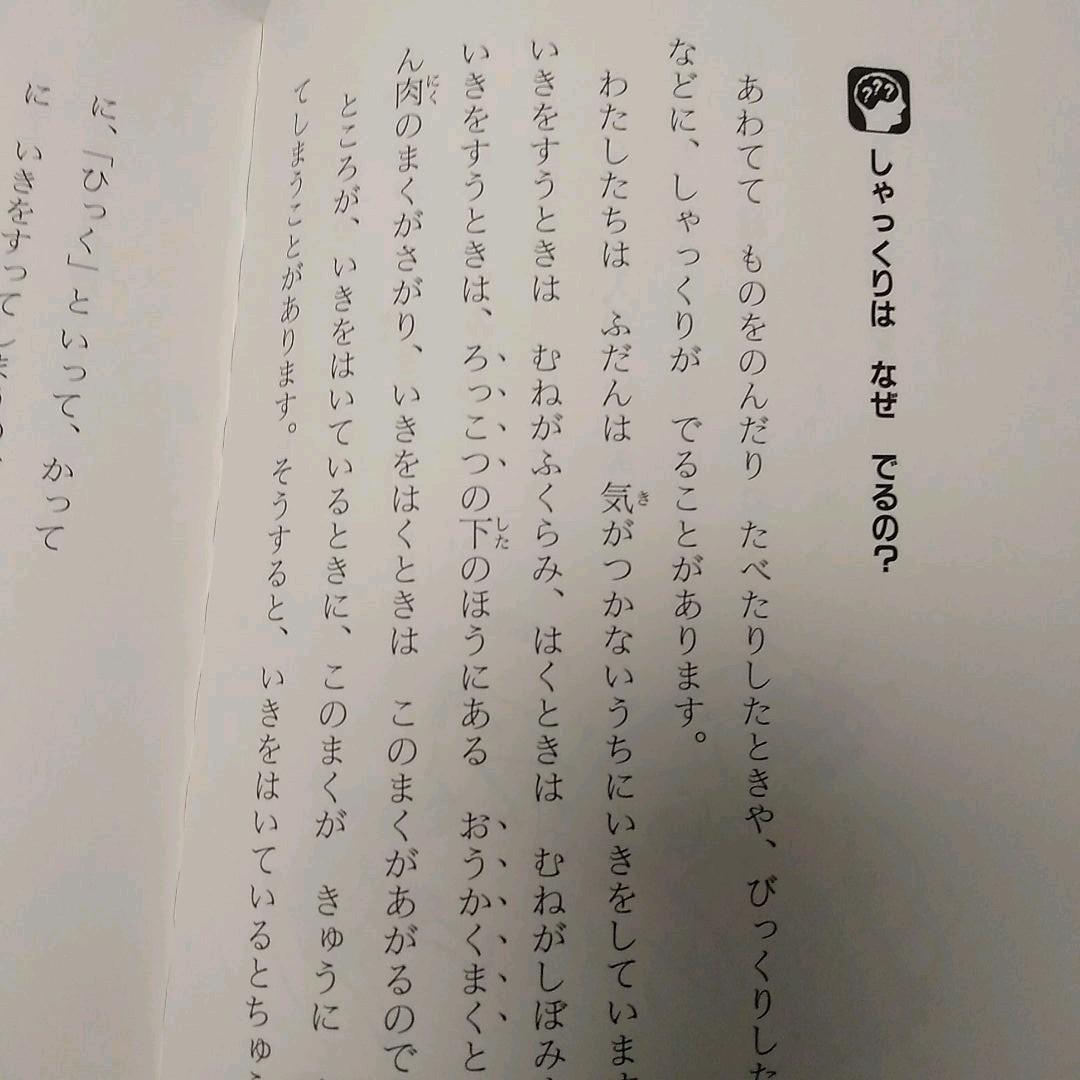 しゃっくりは なぜ でるの?
あわてて ものをのんだり たべたりしたときや、びっくりした
などに、しゃっくりが でることがあります。
わたしたちは ふだんは 気がつかないうちにいきをしていま
いきをすうときは むねがふくらみ、はくときは むねがしぼみ
いきをすうときは、ろっこつの下のほうにある おうかくまくと
ん肉のまくがさがり、いきをはくときは このまくがあがるので
ところが、いきをはいているときに、このまくが きゅうに
てしまうことがあります。そうすると、いきをはいているとちゅ
に、「ひっく」といって、かって
に いきをすって